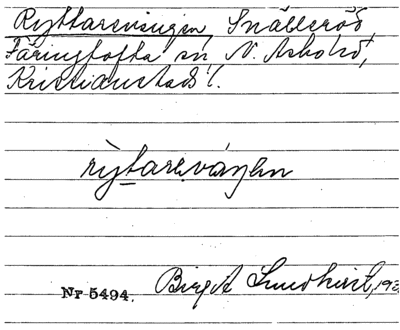 Ryttaresvingen, Snälleröd,
Färingtofta sn N. Åsbo hd,
Kristianstads l.
rỳtaresváŋən
Nr 5494. Birgit Lundkvist, 193